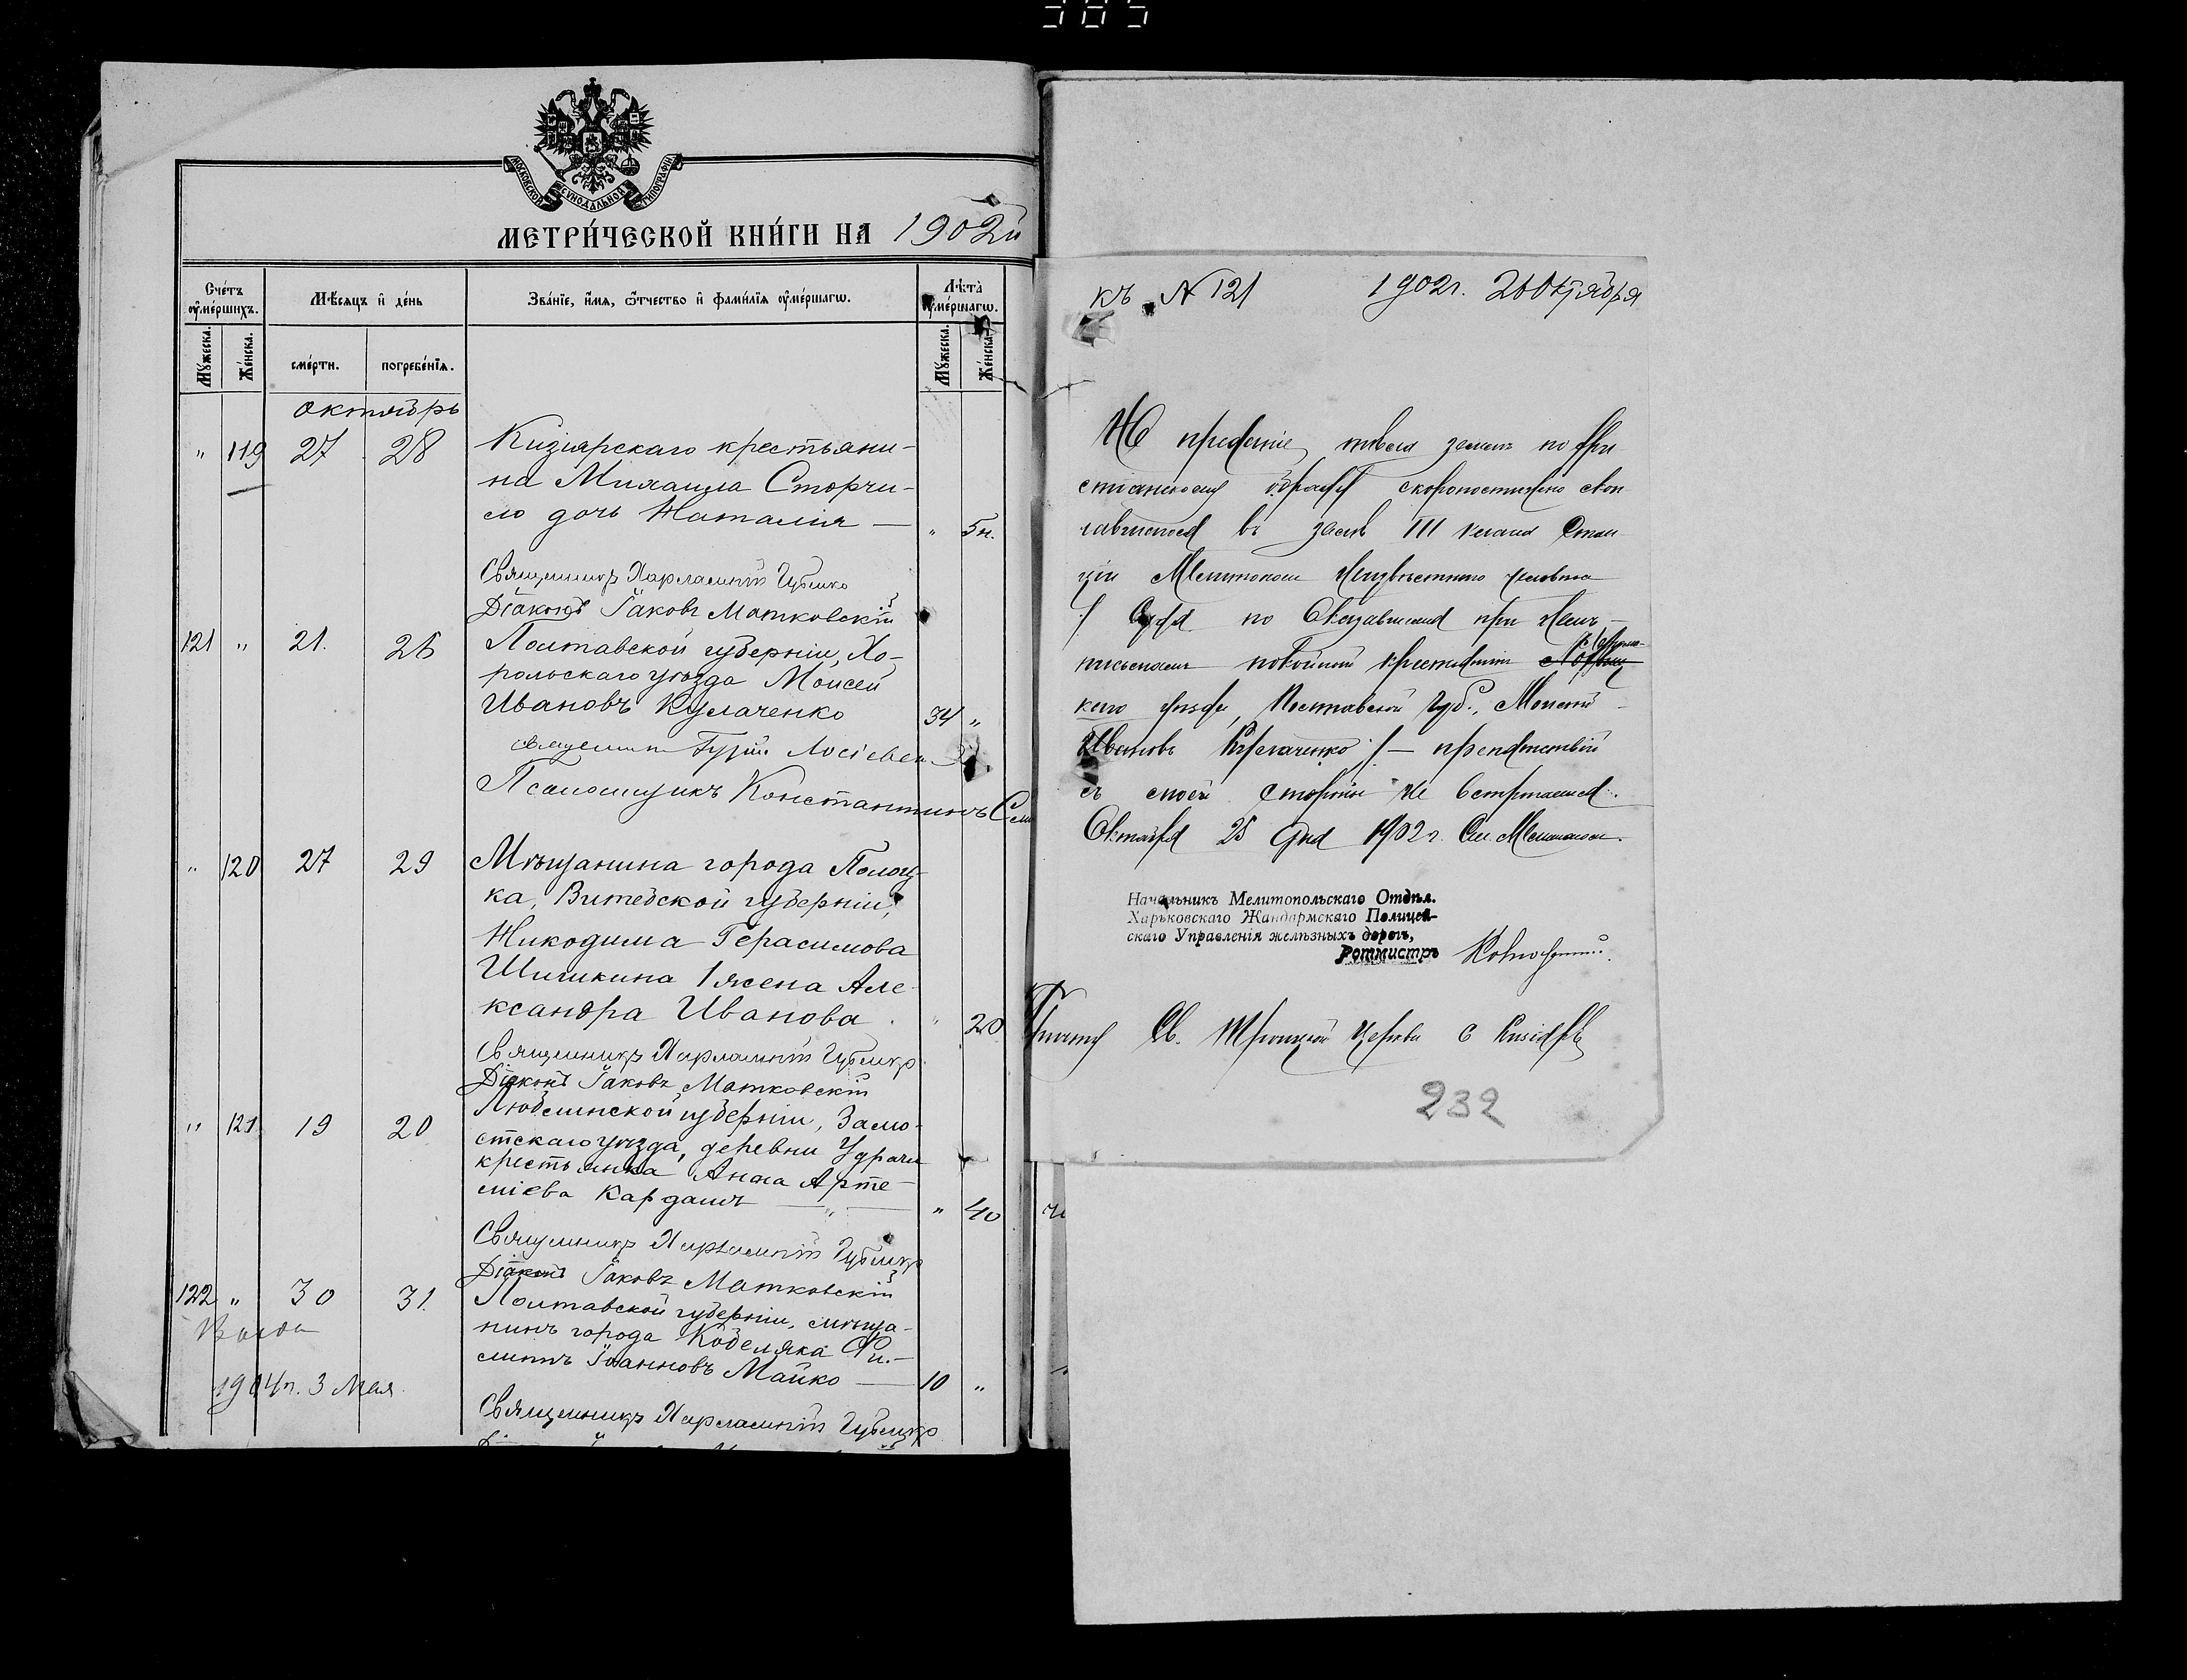 385
МОСКОВСКОЙ СѴНОДАЛЬНОЙ ТИПОГРАФІИ
МЕТРИ́ЧЕСКОЙ КНИ́ГИ НА 1902й
Сче́тъ ᲂу҆ме́ршихъ.
Мѣ́сяцъ и҆ де́нь
Зва́нїе, и҆́мѧ, ѻ҆́тчество и҆ фами́лїѧ ᲂу҆ме́ршагѡ.
Лѣ́та ᲂу҆ме́ршагѡ.
Мꙋ́жеска.
Же́нска.
сме́рти.
погребе́нїѧ.
Мꙋ́жеска.
Же́нска.
октябрь
" 119 27 28 Кизіярскаго крестьяни-
на Михаила Сторчи-
ло дочь Наталія — " 5н.
Священникъ Харлампій Губенко
Діаконъ Іаковъ Матковскій
121 " 21. 26 Полтавской губерніи, Хо-
рольскаго уѣзда Моисей
Ивановъ Кулаченко 34 "
священникъ Гурій
Псаломщикъ Константинъ
" 120 27 29 Мѣщанина города Полоц-
ка, Витебской губерніи,
Никодима Герасимова
Шишкина 1 жена Але-
ксандра Иванова " 20
Священникъ Харлампій Губенко
Діаконъ Іаковъ Матковскій
" 121 19 20 Люблинской губерніи, Замо-
стскаго уѣзда, деревни
крестьянка Анна Арте-
міева Кардашъ — " — " 40
Священникъ Харлампій Губенко
Діаконъ Іаковъ Матковскій
122 " 30 31. Полтавской губерніи, мѣща-
нинъ города Кобеляка Фи-
липпъ Іоанновъ Майко — 10 "
1904 г. 3 Мая
Священникъ Харлампій Губенко
къ № 121 1902г. 26 Октября
На преданіе тѣла землѣ по хри
стіанскому обряду скоропостижно скон
чавшагося въ залѣ III класса Стан
ціи Мелитополь неизвѣстнаго человѣка
/ Судя по оказавшимся при немъ
письмамъ покойный крестьянинъ
каго уѣзда, Полтавской губ., Моисей
Ивановъ Кулаченко / — препятствій
съ моей стороны не встрѣчается.
Октября 25 дня 1902 г. Ст. Мелитополь.
Начальникъ Мелитопольскаго Отдѣл.
Харьковскаго Жандармскаго Полицей-
скаго Управленія желѣзныхъ дорогъ,
Ротмистръ
Причту Св. Троицкой Церкви с Кизіяръ
232